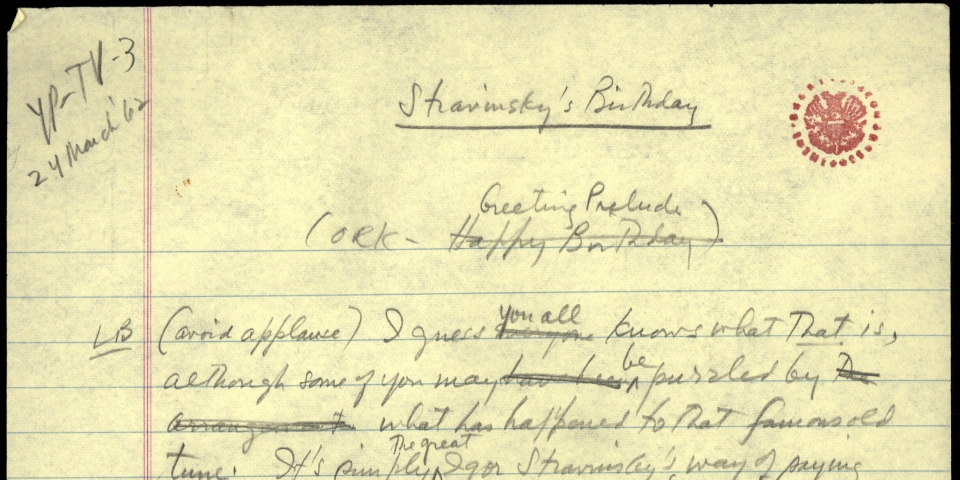 YP-TV-3
24 March '62
Stravinsky's Birthday
Greeting Prelude
(ORK - Happy Birthday)
LB (avoid applause) I guess you all everyone knows what that is,
although some of you may have been be puzzled by the
arrangement what has happened to that famous old
tune. It's simply the great Igor Stravinsky's way of paying